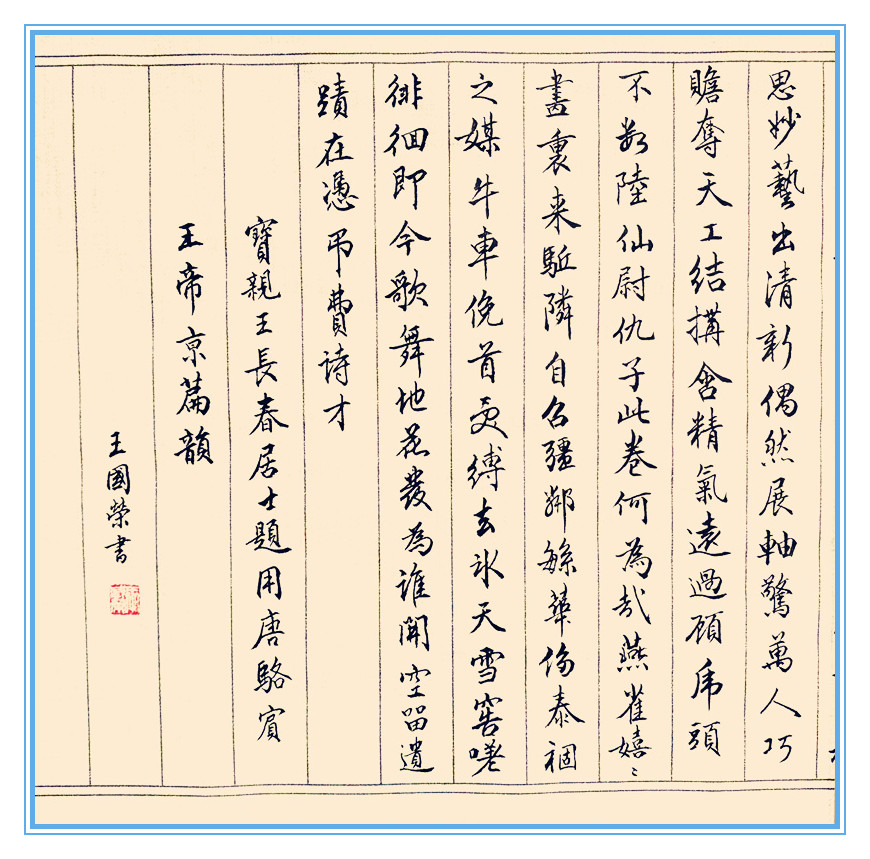 思妙藝出清新偶然展軸驚萬人巧
贍奪天工結搆含精氣遠過顧虎頭
不數陸仙尉仇子此卷何為哉燕雀嬉〻
畫裏来駈隣自召疆鄰華侈泰禍
之媒牛車俛首受縛去氷天雪窖嗟
徘徊即今歌舞地花發為誰開空留遺
蹟在憑弔費詩才
寶親王長春居士題用唐駱賓
王帝京篇韻
王國榮書